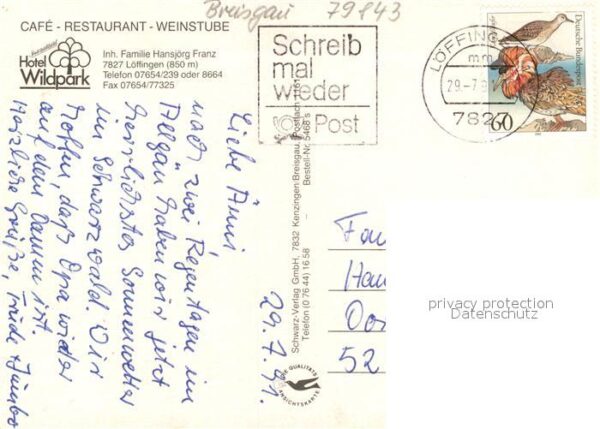 Breisgau 79843
CAFÉ - RESTAURANT - WEINSTUBE
Hotel
Wildpark
Inh. Familie Hansjörg Franz
7827 Löffingen (850 m)
Telefon 07654/239 oder 8664
Fax 07654/77325
Schreib
mal
wieder
Post
LÖFFINGEN
mm
29.-7.9
7827
Deutsche Bundespost
60
29.7.91.
Liebe Anni,
nach zwei Regentagen im
Allgäu haben wir jetzt
herrlichstes Sommerwetter
im Schwarzwald. Wir
hoffen, daß Opa wieder
auf dem Damm ist.
Herzliche Grüße,
Schwarz-Verlag GmbH, 7832 Kenzingen Breisgau, Postfach 1161
Telefon (0 76 44) 16 58 · Bestell-Nr. 5468 s
DIE QUALITÄTS
ANSICHTSKARTE
Fam
Han
Dor
52
privacy protection
Datenschutz